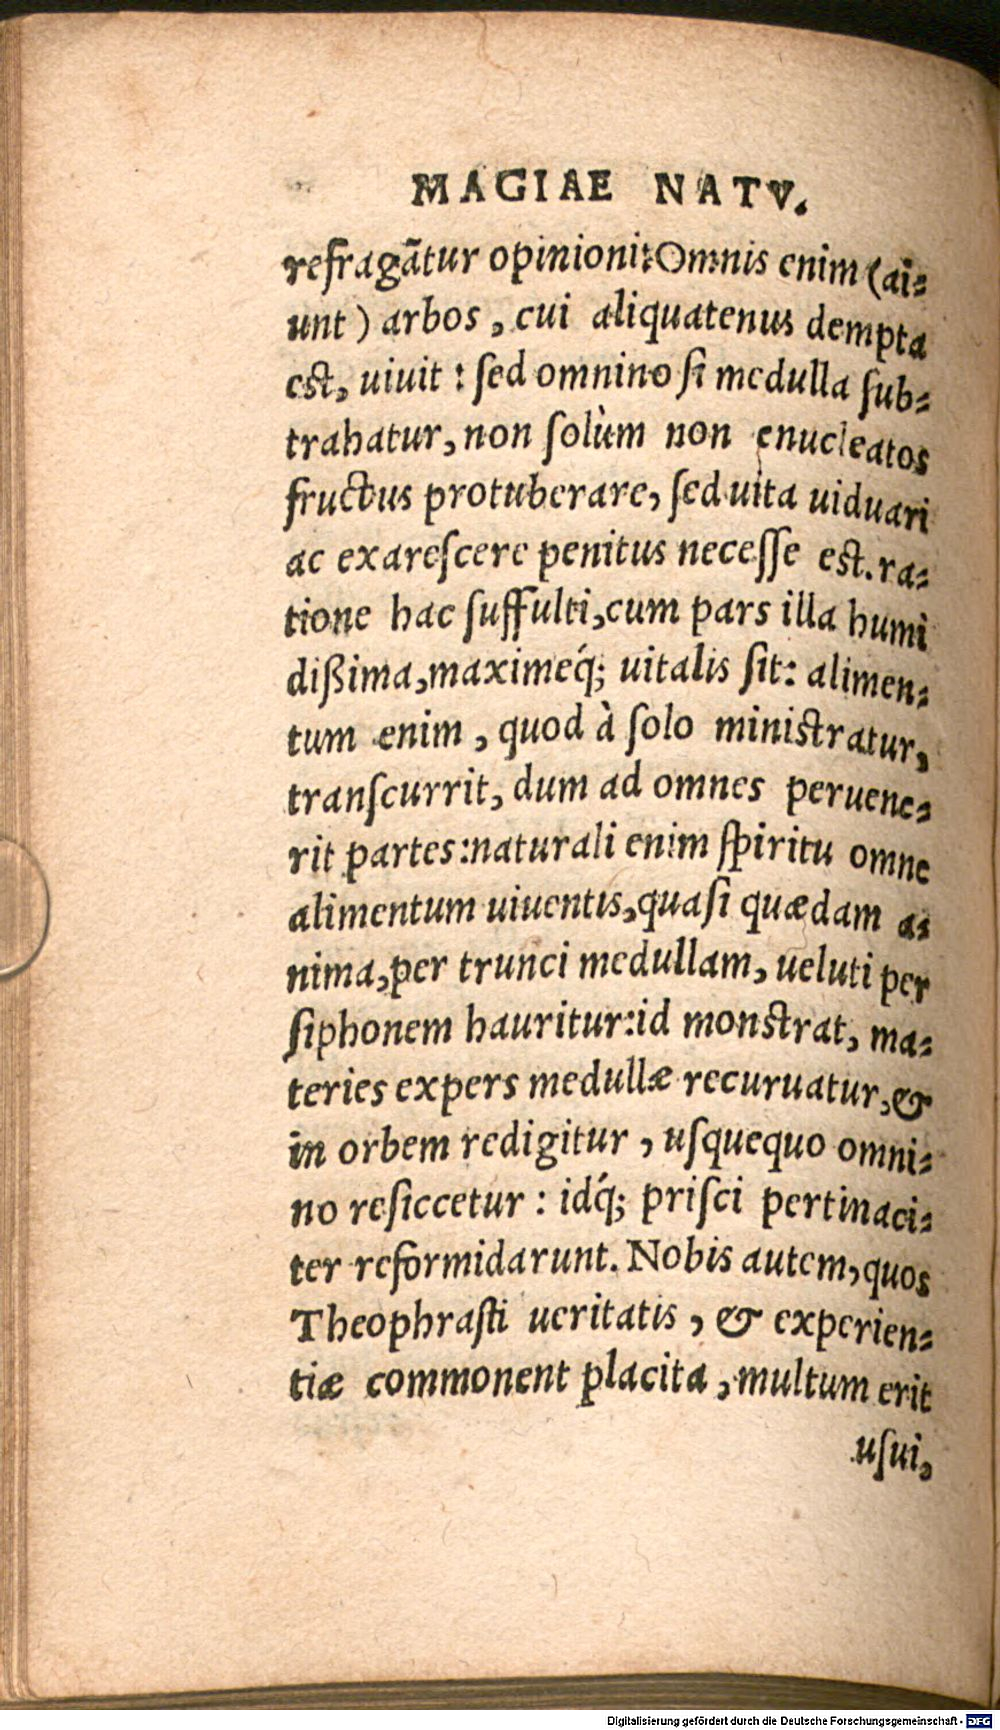 MAGIAE NATV.
refragãtur opinioni:Omnis enim (ai⸗
unt) arbos, cui aliquatenus dempta
est, uiuit: sed omnino si medulla sub⸗
trahatur, non solùm non enucleatos
fructus protuberare, sed uita uiduari
ac exarescere penitus necesse est. ra⸗
tione hac suffulti, cum pars illa humi
dißima, maximeq́; uitalis sit: alimen⸗
tum enim, quod à solo ministratur,
transcurrit, dum ad omnes peruene⸗
rit partes:naturali enim spiritu omne
alimentum uiuentis, quasi quædam a⸗
nima, per trunci medullam, ueluti per
siphonem hauritur:id monstrat, ma⸗
teries expers medullæ recuruatur, &
in orbem redigitur, usquequo omni⸗
no resiccetur: idq́; prisci pertinaci⸗
ter reformidarunt. Nobis autem, quos
Theophrasti ueritatis, & experien⸗
tiæ commonent placita, multum erit
usui,
Digitalisierung gefördert durch die Deutsche Forschungsgemeinschaft - DFG